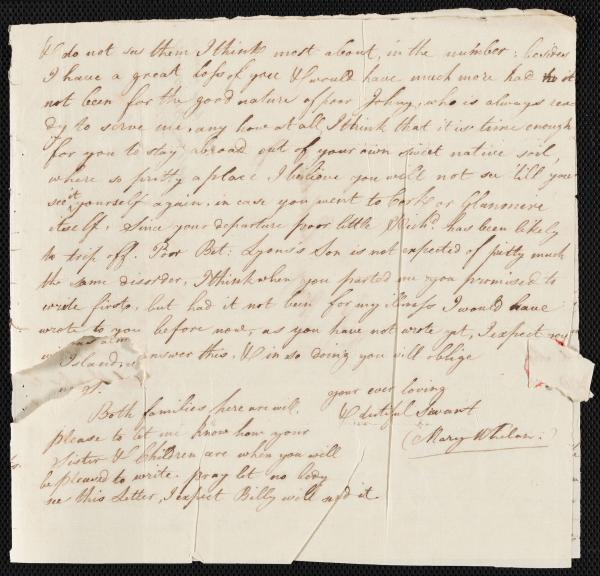 & do not see them I think most about, in the number: besides
I have a great Loss of you & would have much more had it
not been for the good nature of poor Johny, who is always rea
dy to serve me, any how at all, I think that it is time enough
for you to stay abroad out of your own sweet native soil,
where so pretty a place, I believe you will not see till you
see it yourself again, in case you went to Cork or Glanmere
itself, Since your departure poor little Rich.d has been likely
to trip off. Poor Bet: Lyons's Son is not expected of pritty much
the same disorder, I think when you parted me you promised to
write first, but had it not been for my illness I would have
wrote to you before now, as you have not wrote yet, I expect you
answer this, & in so doing you will oblige
Island
your ever loving
Both families here are well, & dutiful Servant
please to let me know how your (Mary Whelan.)
Sister & Children are when you will
be pleased to write. pray let no body
see this Letter, I expect Billy will it